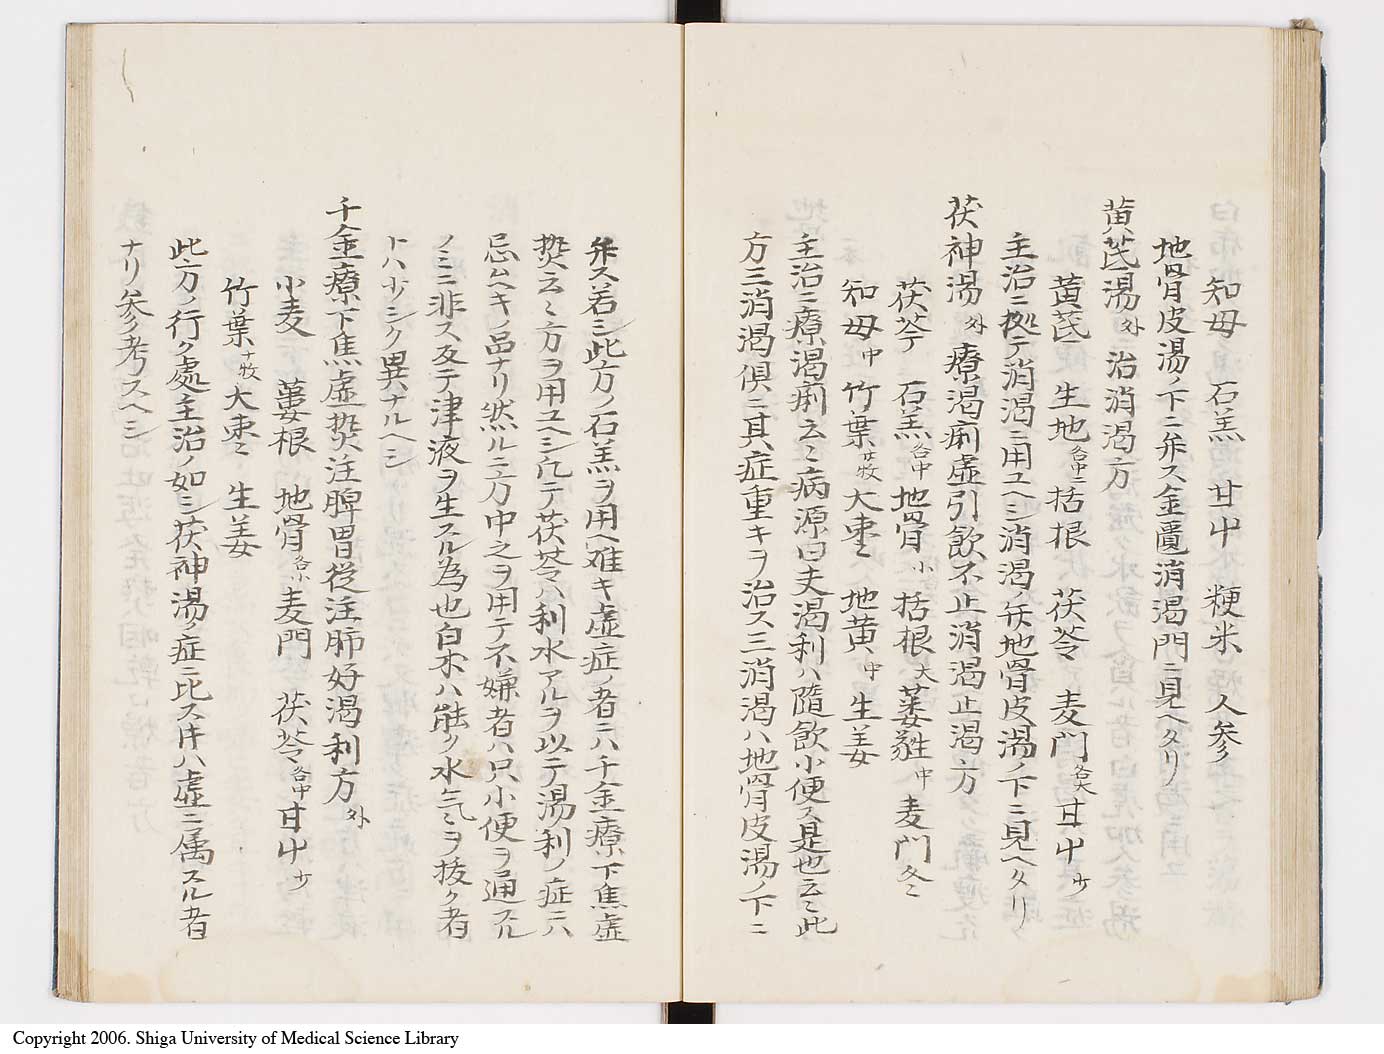 知母 石羔 甘屮 粳米 人参
地骨皮湯ノ下ニ弁ス金匱消渇門ニ見ヘタリ
黄芪湯外 治消渇方
黄芪 生地各中 括根 茯苓 麦門各大 甘屮少
主治ニ拠テ消渇ニ用ユヘシ消渇ノ弁地骨皮湯ノ下ニ見ヘタリ
茯神湯外 療渇痢虚引飲不止消渇止渇方
茯苓 石羔各中 地骨小 括根大 萎蕤中 麦門冬
知母中 竹葉 大棗 地黄中 生姜
主治ニ療渇痢云〻病源曰夫渇利ハ随飲小便ス是也云〻此
方三消渇倶ニ其症重キヲ治ス三消渇ハ地骨皮湯ノ下ニ
弁ス若シ此方ノ石羔ヲ用ヘ難キ虚症ノ者ニハ千金療下焦虚
熱云〻方ヲ用ユヘシ凡テ茯苓ハ利水アルヲ以テ湯利ノ症ニハ
忌ムヘキノ品ナリ然ルニ方中之ヲ用テ不嫌者ハ只小便ヲ通スル
ノミニ非ス反テ津液ヲ生スル為也白朮ハ能ク水气ヲ抜ク者
トハ少シク異ナルヘシ
千金療下焦虚熱注脾胃従注肺好渇利方外
小麦 薑根 地骨各小 麦門 茯苓各中 甘屮少
竹葉 大棗 生姜
此方ノ行ク處主治ノ如シ茯神湯ノ症ニ比スレ𪜈ハ虚ニ属スル者
ナリ参考スヘシ
Copyright 2006. Shiga University of Medical Science Library